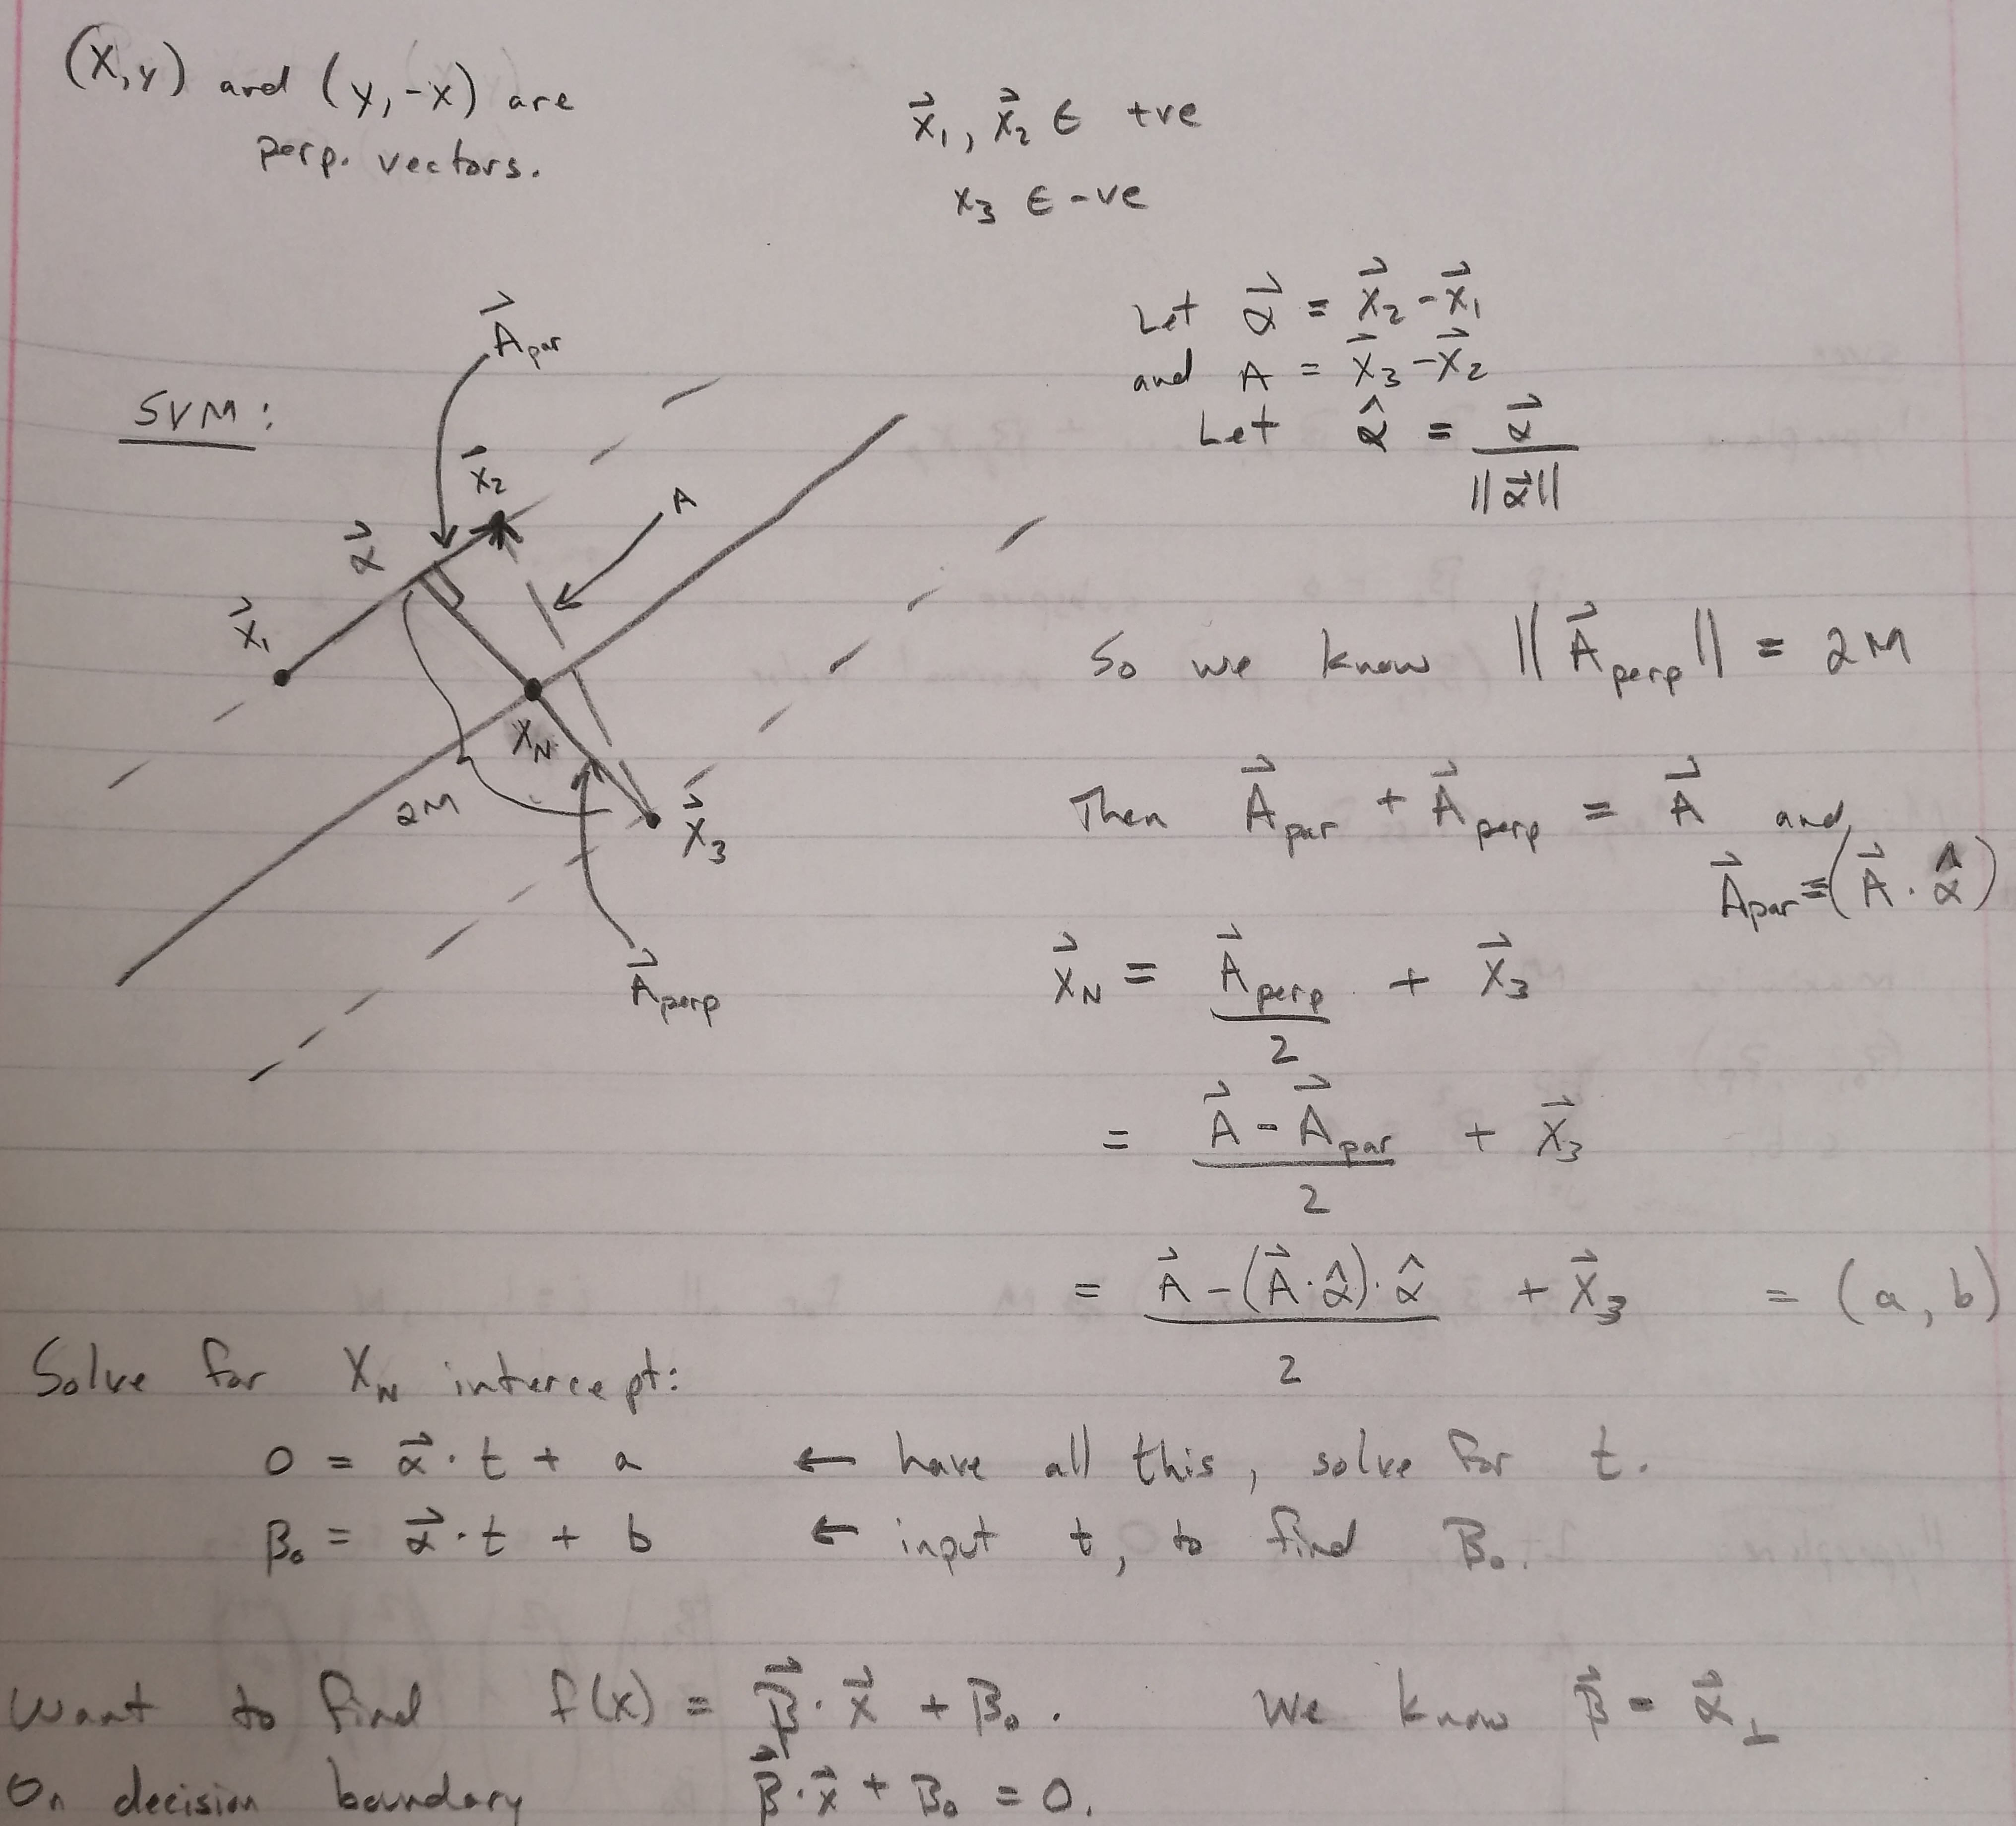 (x,y) and (y,-x) are
perp. vectors.
x⃗₁, x⃗₂ ∈ +ve
x₃ ∈ -ve
Let α⃗ = x⃗₂ - x⃗₁
and A = x⃗₃ - x⃗₂
Let α̂ = α⃗ / ||α⃗||
SVM:
A⃗par
x⃗₂
A
α⃗
x⃗₁
xN
2M
x⃗₃
A⃗perp
So we know ||A⃗perp|| = 2M
Then A⃗par + A⃗perp = A⃗ and,
A⃗par = (A⃗ · α̂)
x⃗N = A⃗perp / 2 + x⃗₃
= (A⃗ - A⃗par) / 2 + x⃗₃
= (A⃗ - (A⃗·α̂)·α̂) / 2 + x⃗₃ = (a, b)
Solve for XN intercept:
0 = α⃗ · t + a ← have all this, solve for t.
β₀ = α⃗ · t + b ← input t, to find β₀.
Want to find f(x) = β⃗ · x⃗ + β₀. We know β⃗ = α⃗⊥
On decision boundary β⃗ · x⃗ + β₀ = 0.